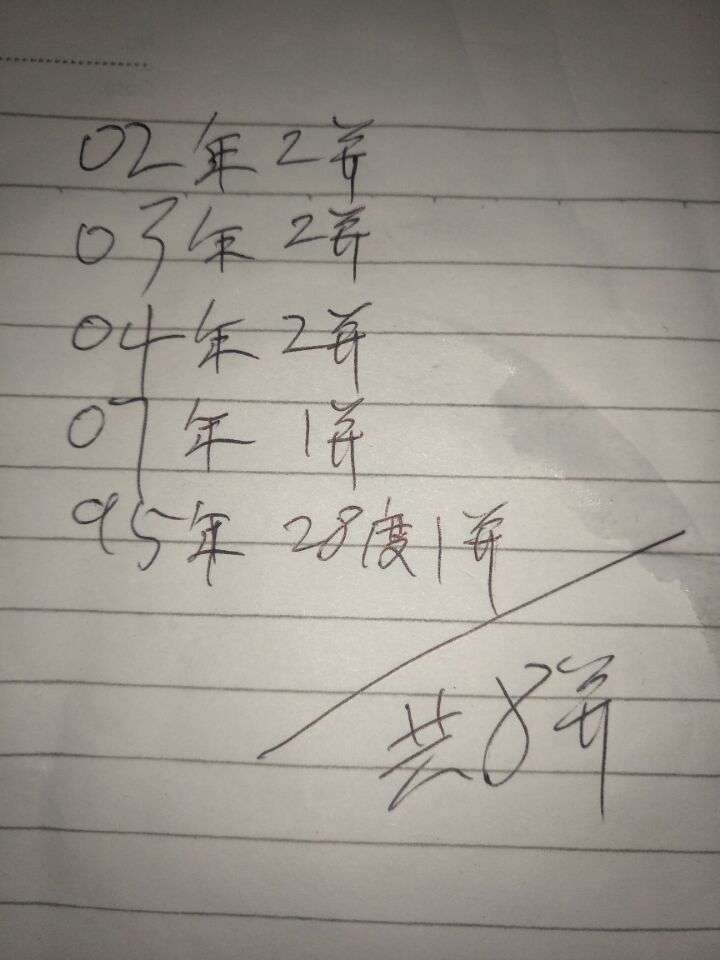 02年 2并
03年 2并
04年 2并
07年 1并
95年 28度1并
共8并